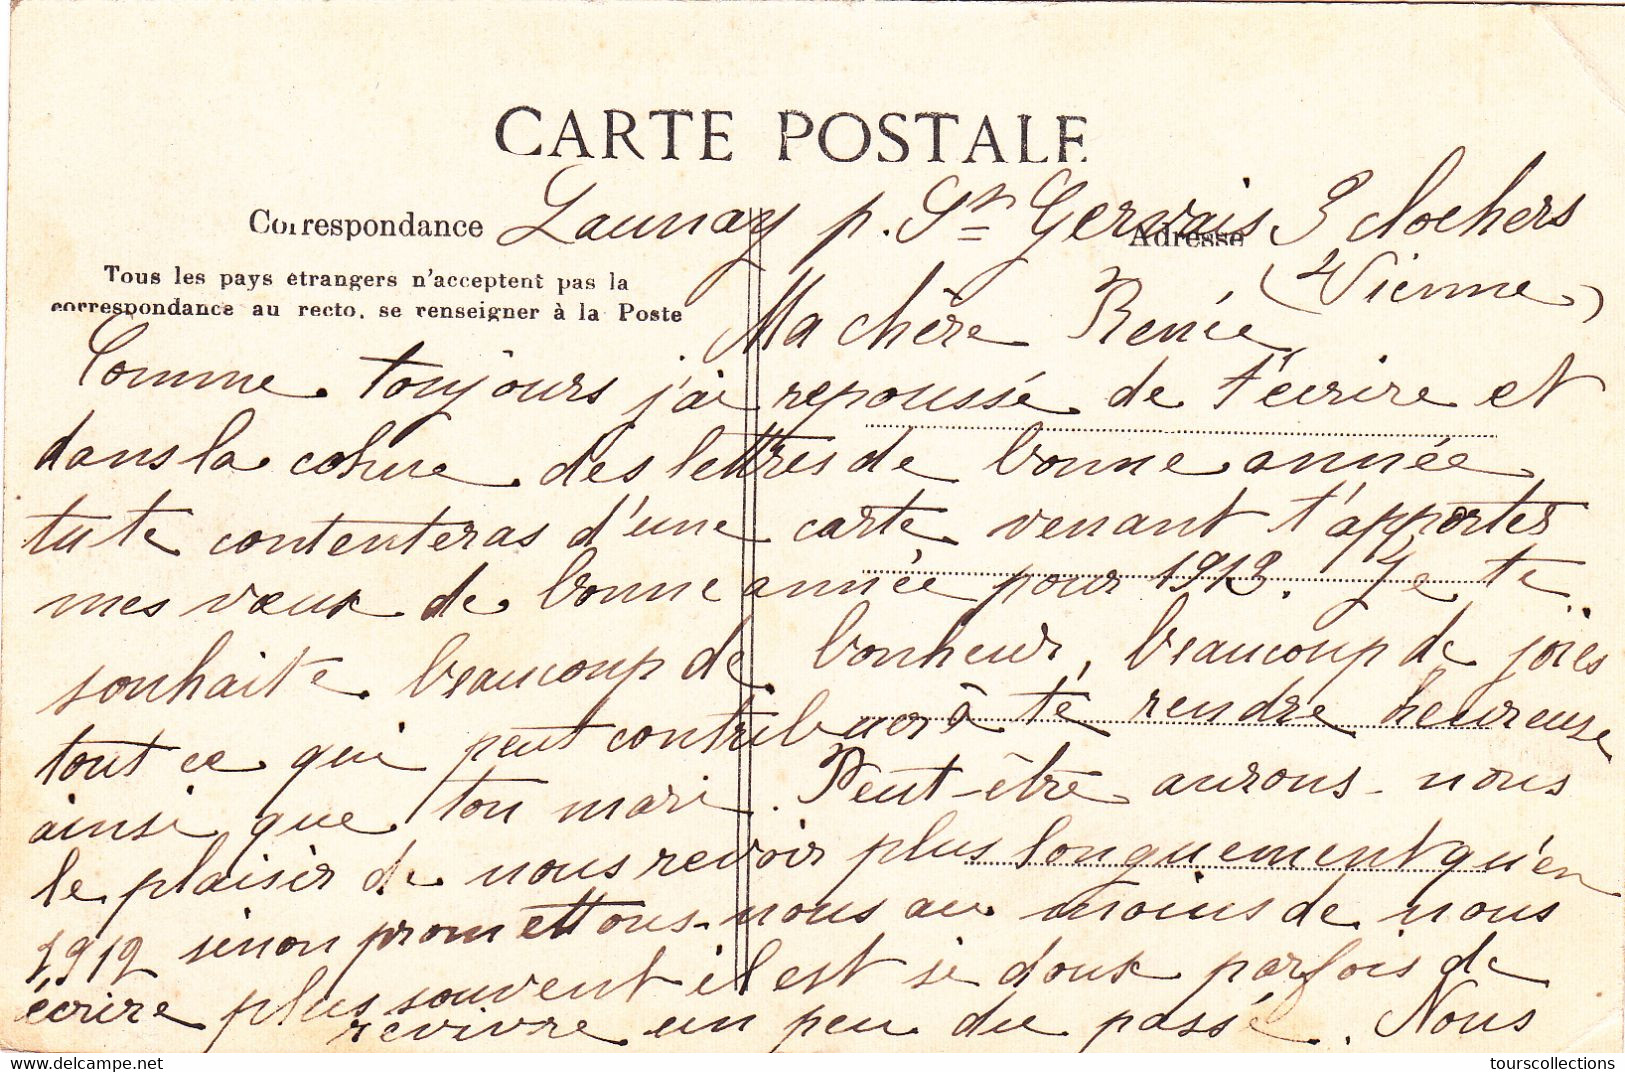 CARTE POSTALE
Correspondance
Adresse
Tous les pays étrangers n'acceptent pas la
correspondance au recto, se renseigner à la Poste
Launay p. St Gervais 3 clochers
(Vienne)
Ma chère Renée,
Comme toujours j'ai repoussé de t'écrire et
dans la cohue des lettres de bonne année
tu te contenteras d'une carte venant t'apporter
mes vœux de bonne année pour 1913. Je te
souhaite beaucoup de bonheur, beaucoup de joies
tout ce qui peut contribuer à te rendre heureuse
ainsi que ton mari. Peut-être aurons-nous
le plaisir de nous revoir plus longuement qu'en
1912 sinon promettons-nous au moins de nous
écrire plus souvent il est si doux parfois de
revivre un peu du passé. Nous
delcampe.net
tourscollections